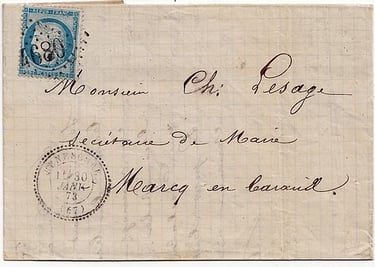 REPUB. FRANC.
4680
Monsieur Ch. Lesage
Secrétaire de Mairie
Marcq en Barœul.
30
JANV.
73
(67)